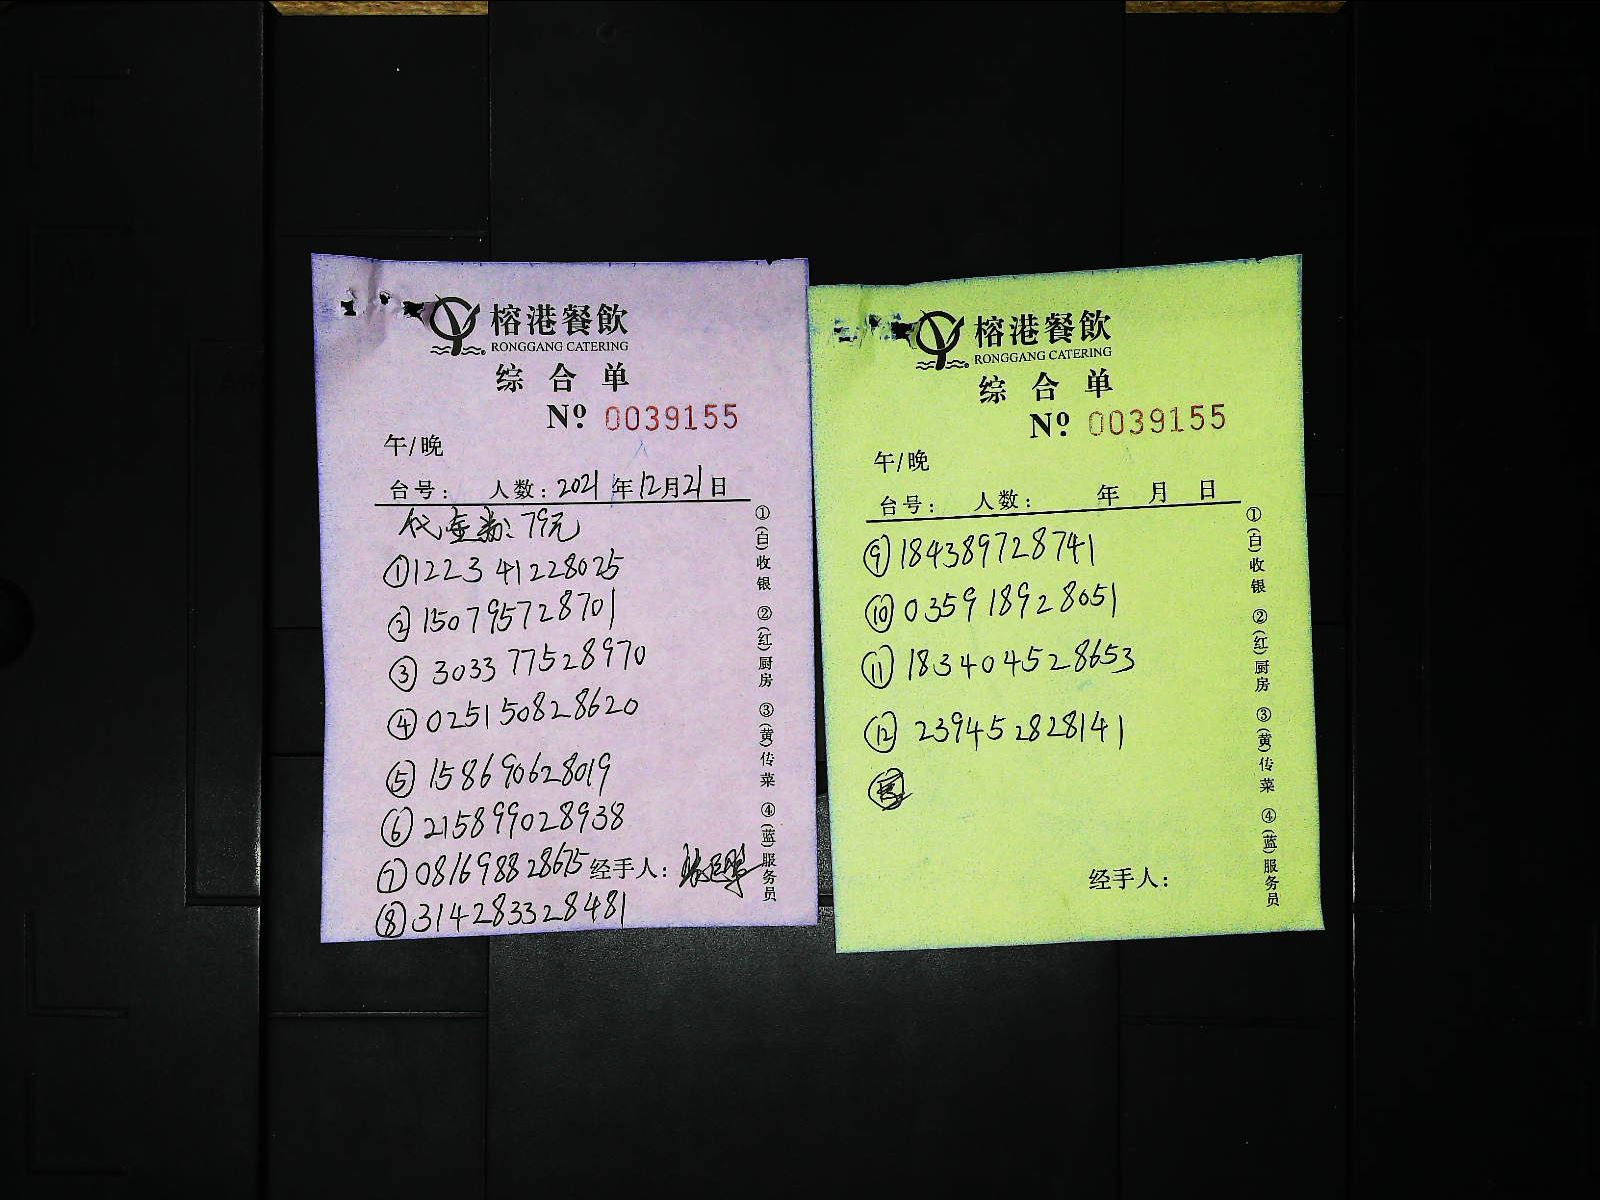 榕港餐飲
RONGGANG CATERING
综合单
Nº 0039155
午/晚
台号： 人数：2021年12月21日
代金券：79元
①122341228025
②150795728701
③303377528970
④025150828620
⑤158690628019
⑥215899028938
⑦081698828675 经手人：
⑧314283328481
①(白)收银 ②(红)厨房 ③(黄)传菜 ④(蓝)服务员
榕港餐飲
RONGGANG CATERING
综合单
Nº 0039155
午/晚
台号： 人数： 年 月 日
⑨184389728741
⑩035918928051
⑪183404528653
⑫239452828141
经手人：
①(白)收银 ②(红)厨房 ③(黄)传菜 ④(蓝)服务员